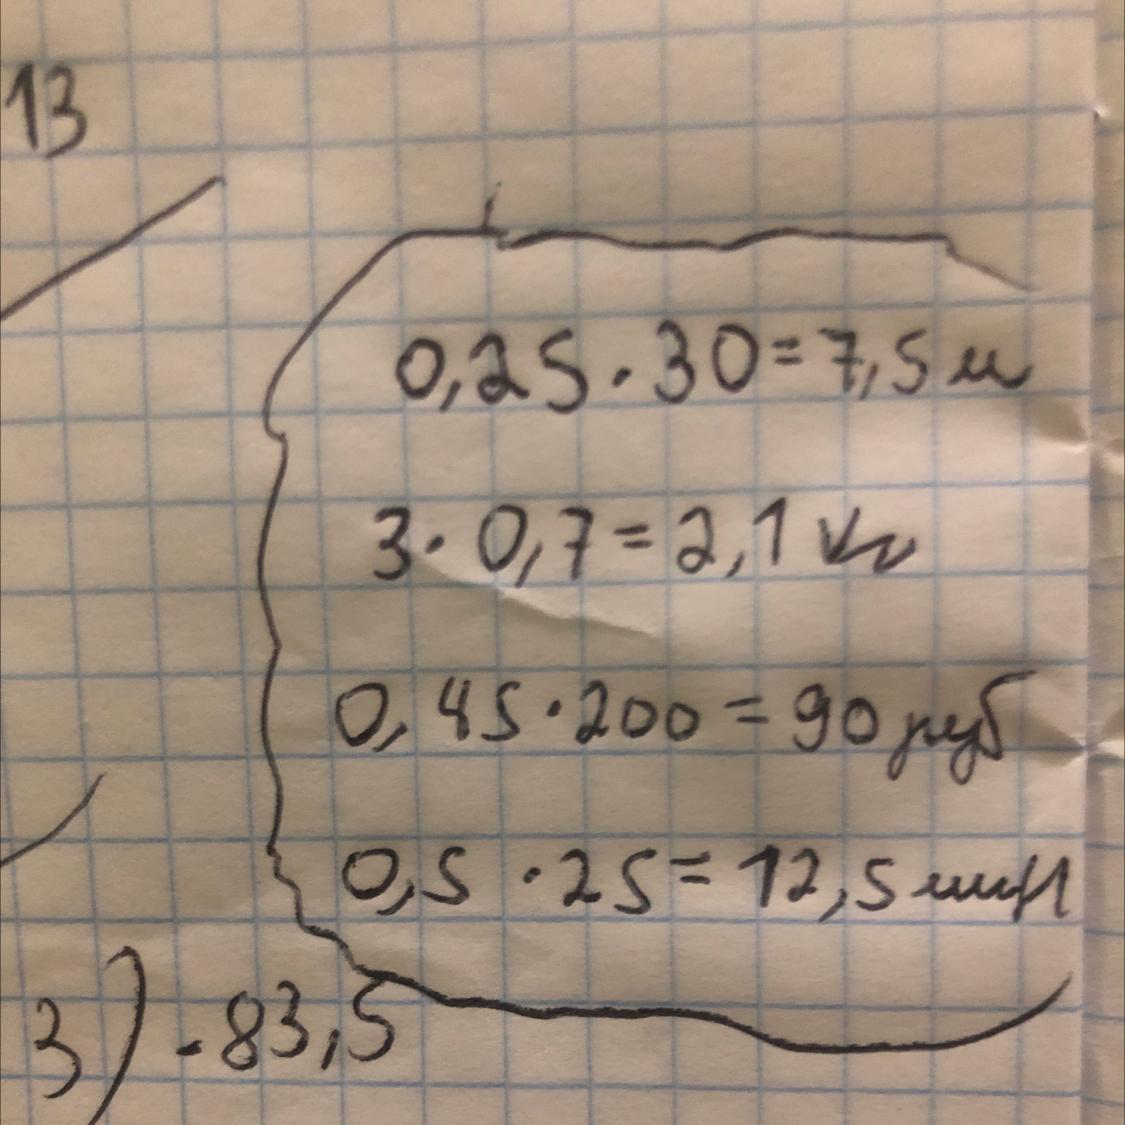 13
0,25 · 30 = 7,5 м
3 · 0,7 = 2,1 кг
0,45 · 200 = 90 руб
0,5 · 25 = 12,5
3) · 83,5